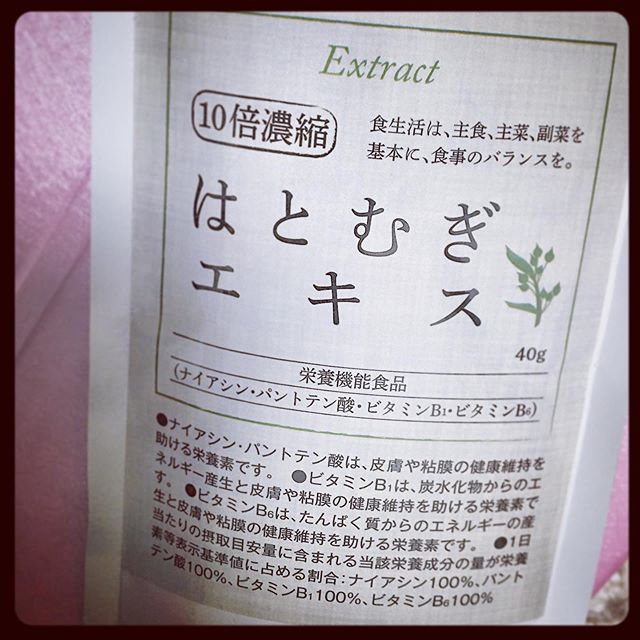 Extract
10倍濃縮
食生活は、主食、主菜、副菜を
基本に、食事のバランスを。
はとむぎ
エキス
40g
栄養機能食品
(ナイアシン・パントテン酸・ビタミンB1・ビタミンB6)
●ナイアシン・パントテン酸は、皮膚や粘膜の健康維持を
助ける栄養素です。 ●ビタミンB1は、炭水化物からのエ
ネルギー産生と皮膚や粘膜の健康維持を助ける栄養素で
す。 ●ビタミンB6は、たんぱく質からのエネルギーの産
生と皮膚や粘膜の健康維持を助ける栄養素です。 ●1日
当たりの摂取目安量に含まれる当該栄養成分の量が栄養
素等表示基準値に占める割合:ナイアシン100%、パント
テン酸100%、ビタミンB1100%、ビタミンB6100%